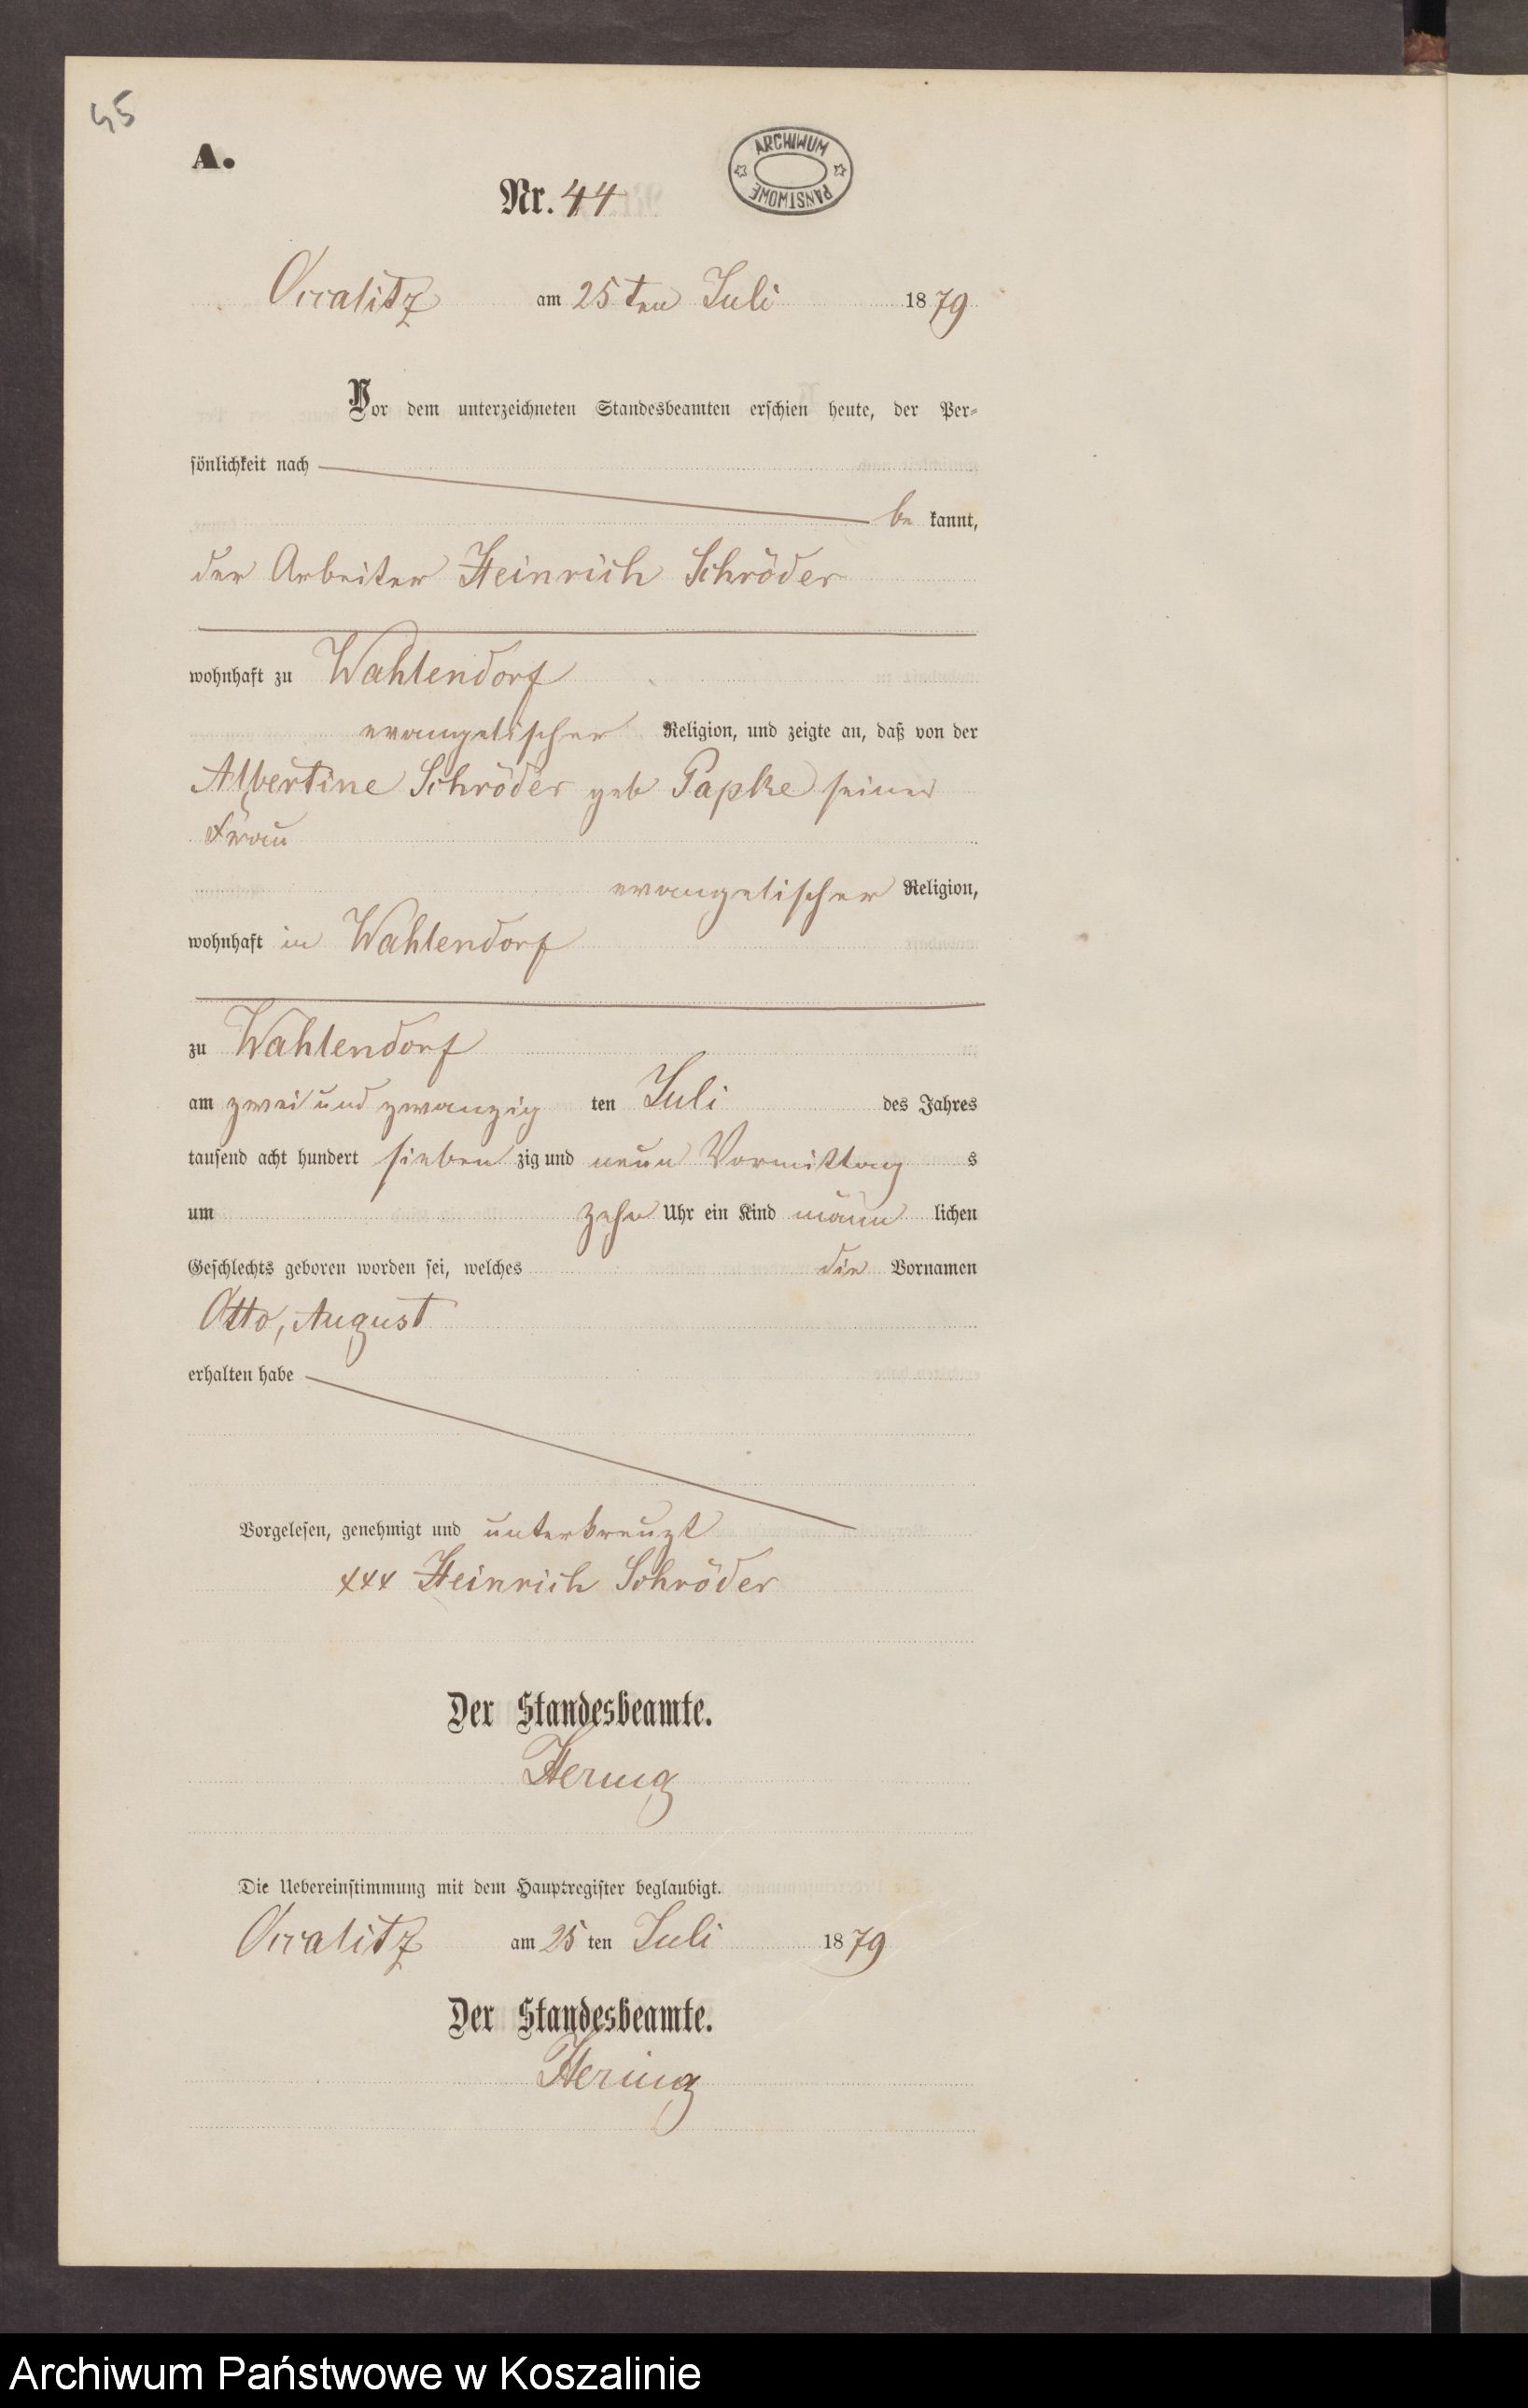 45
A.
ARCHIWUM
PAŃSTWOWE
Nr. 44
Occalitz am 25ten Juli 1879
Vor dem unterzeichneten Standesbeamten erschien heute, der Per-
sönlichkeit nach
be kannt,
der Arbeiter Heinrich Schröder
wohnhaft zu Wahlendorf
evangelischer Religion, und zeigte an, daß von der
Albertine Schröder geb Papke seiner
Frau
evangelischer Religion,
wohnhaft in Wahlendorf
zu Wahlendorf
am zwei und zwanzig ten Juli des Jahres
tausend acht hundert sieben zig und neun Vormittag s
um zehn Uhr ein Kind männ lichen
Geschlechts geboren worden sei, welches die Vornamen
Otto, August
erhalten habe
Vorgelesen, genehmigt und unterkreuzt
xxx Heinrich Schröder
Der Standesbeamte.
Hering
Die Uebereinstimmung mit dem Hauptregister beglaubigt.
Occalitz am 25 ten Juli 1879
Der Standesbeamte.
Hering
Archiwum Państwowe w Koszalinie